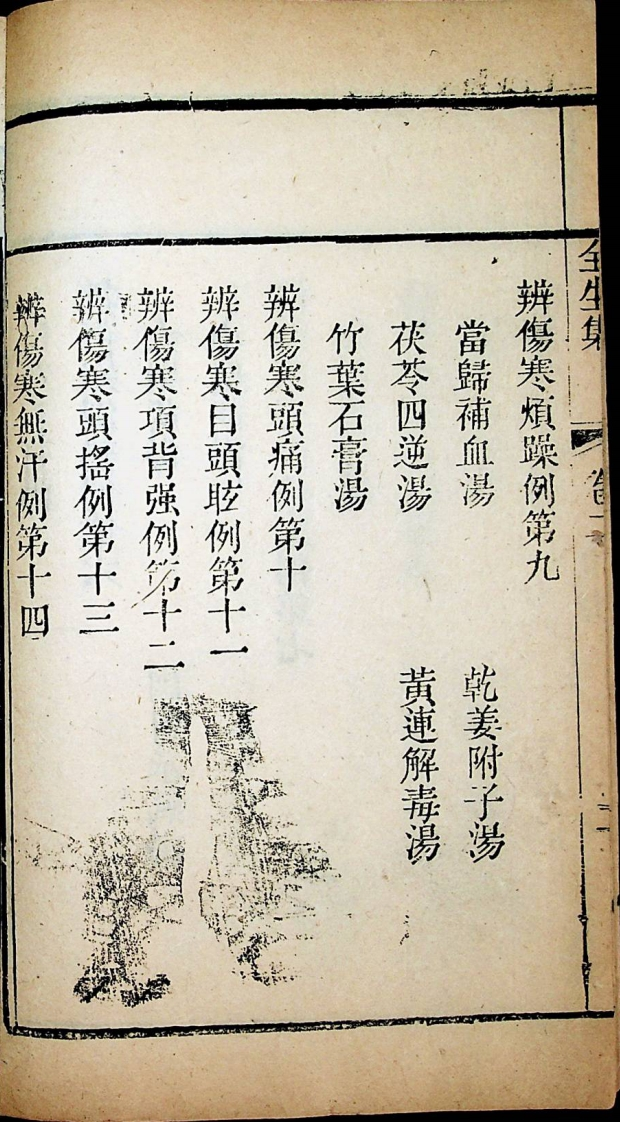 全生集 卷一
辨傷寒煩躁例第九
當歸補血湯 乾姜附子湯
茯苓四逆湯 黃連解毒湯
竹葉石膏湯
辨傷寒頭痛例第十
辨傷寒目頭眩例第十一
辨傷寒項背强例第十二
辨傷寒頭搖例第十三
辨傷寒無汗例第十四